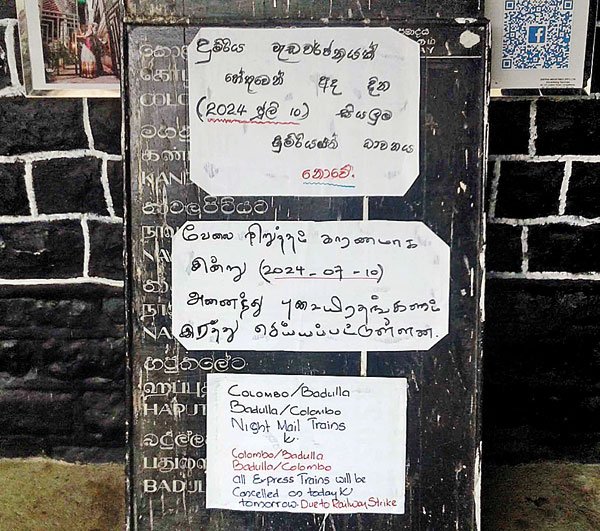 දුම්රිය වැඩවර්ජනයක්
හේතුවෙන් අද දින
(2024 ජූලි 10) සියලුම
දුම්රියයන් ධාවනය
නොවේ.
வேலை நிறுத்தம் காரணமாக
இன்று (2024-07-10)
அனைத்து புகையிரதங்களும்
இரத்து செய்யப்பட்டுள்ளன.
COLOMBO/Badulla
Badulla/Colombo
Night Mail Trains
&
Colombo/Badulla
Badulla/Colombo
all Express Trains will be
Cancelled on today &
tomorrow. Due to Railway Strike
නාවලපිටියට
හපුතලේට
HAPUT
බදුල්ල
BADUL